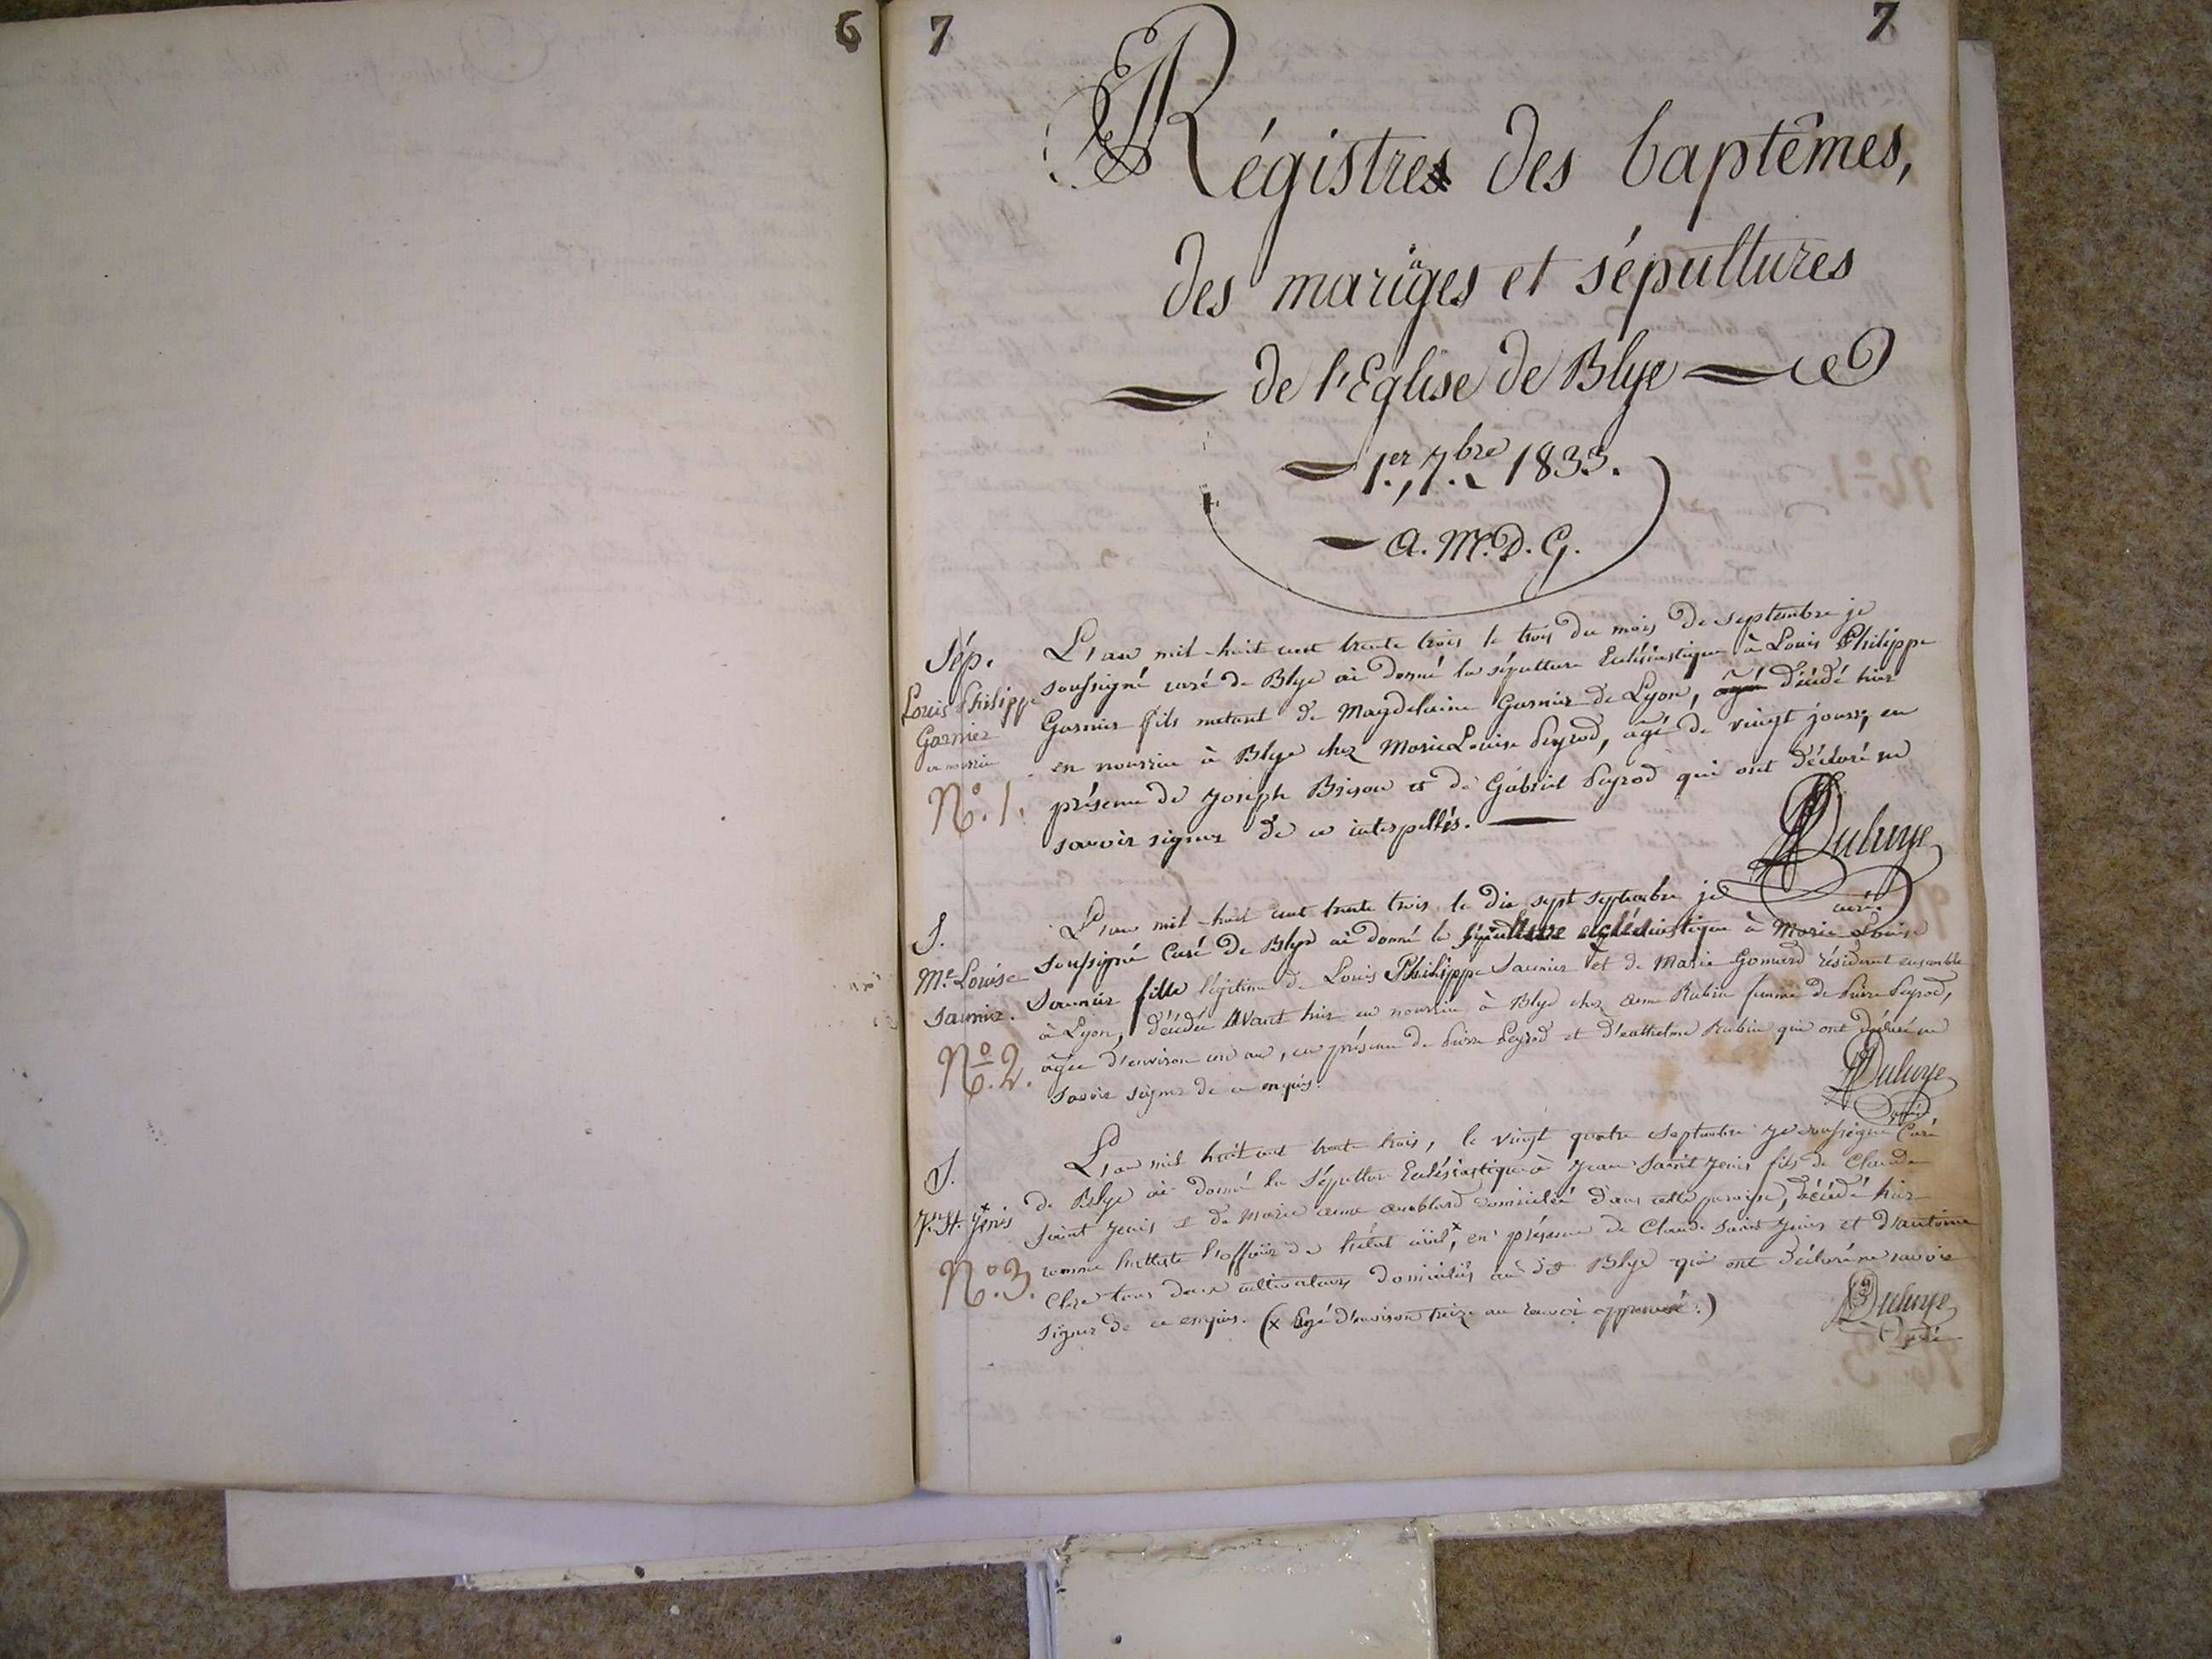 6
7
7
Régistres des baptêmes,
des mariages et sépultures
de l'Eglise de Blye
1.er, 7.bre 1833.
A. M. D. G.
Sép.
Louis Philippe
Garnier
en nourrice
N.o 1.
L'an mil-huit cent trente trois le trois du mois de septembre je
soussigné curé de Blye ai donné la sépulture Ecclésiastique à Louis Philippe
Garnier fils naturel de Magdelaine Garnier de Lyon, décédé hier
en nourrice à Blye chez Marie Louise Peyrod, âgé de vingt jours, en
présence de Joseph Brison et de Gabriel Peyrod qui ont déclaré ne
savoir signer de ce interpellés.
Duluye
curé.
S.
M.e Louise
Saunier.
N.o 2.
L'an mil-huit cent trente trois, le dix sept septembre je
soussigné Curé de Blye ai donné la sépulture ecclésiastique à Marie Louise
Saunier fille légitime de Louis Philippe Saunier et de Marie Gonnard résident ensemble
à Lyon, décédée Avant hier en nourrice à Blye chez anne Rubin femme de Pierre Peyrod,
âgée d'environ un an, en présence de Pierre Peyrod et d' Rubin qui ont déclaré ne
savoir signer de ce enquis.
Duluye
curé.
S.
J.n St. Jenis
N.o 3.
L'an mil huit cent trente trois, le vingt quatre septembre je soussigné Curé
de Blye ai donné la Sépulture Ecclésiastique à Jean Saint Jenis fils de Claude
Saint Jenis et de Marie anne domiciliés dans cette paroisse, décédé hier
comme l'atteste l'officier de l'état civil x, en présence de Claude Saint Jenis et d'antoine
Clere tous deux cultivateurs domiciliés au dit Blye qui ont déclaré ne savoir
signer de ce enquis. (x Agé d'environ treize an renvoi approuvé.)
Duluye
Curé